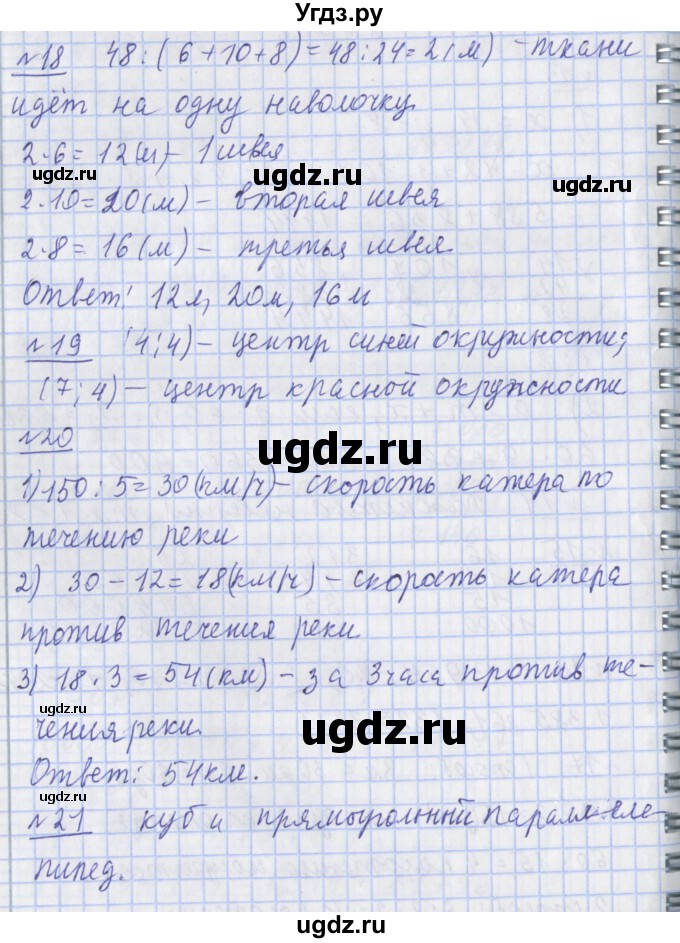 Угдз.ру
№18 48:(6+10+8)=48:24=2(м) - ткани
идёт на одну наволочку.
2·6=12(м) - 1 швея
2·10=20(м) - вторая швея
2·8=16(м) - третья швея.
Ответ: 12м, 20м, 16м
№19 (4;4) - центр синей окружности;
(7;4) - центр красной окружности
№20
1) 150:5=30(км/ч) - скорость катера по
течению реки
2) 30-12=18(км/ч) - скорость катера
против течения реки
3) 18·3=54(км) - за 3 часа против те-
чения реки.
Ответ: 54км.
№21 куб и прямоугольный параллеле-
пипед.
ugdz.ru
ugdz.ru
ugdz.ru
ugdz.ru
ugdz.ru
ugdz.ru
ugdz.ru
ugdz.ru
ugdz.ru
ugdz.ru
ugdz.ru